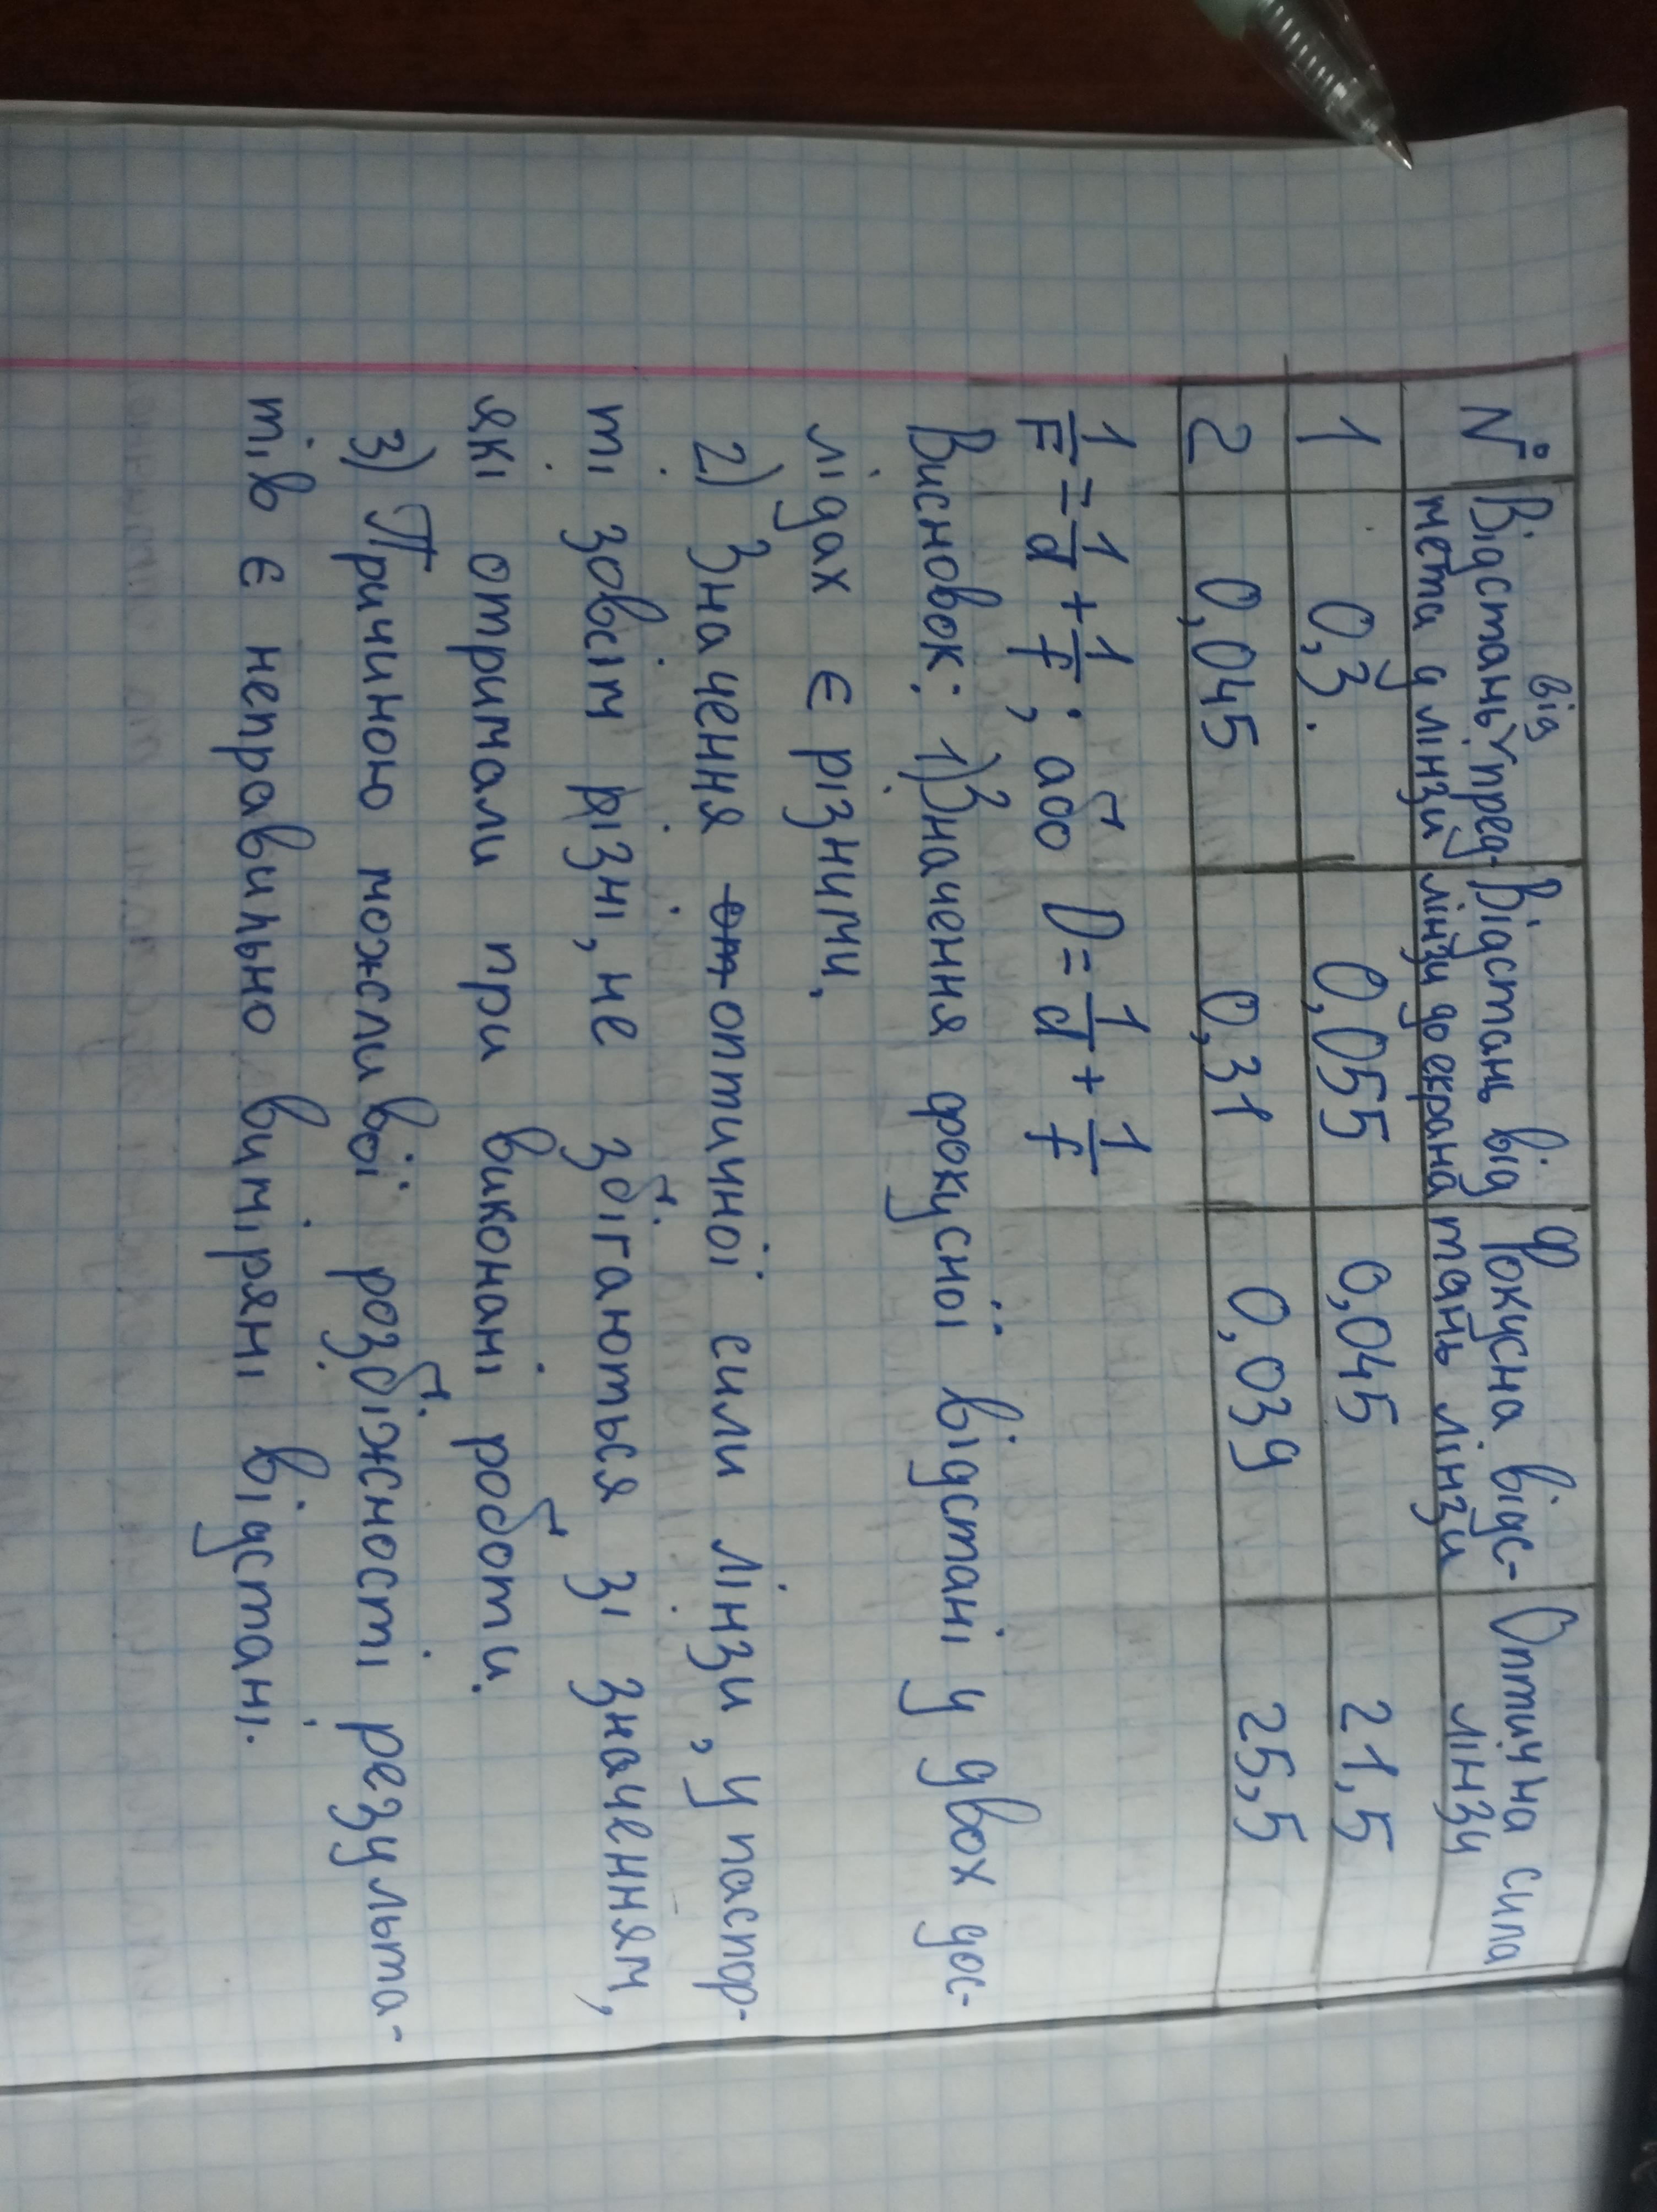 № Відстань від пред- Відстань від Фокусна відс- Оптична сила
мета д лінзи лінзи до екрана тань лінзи лінзи
1 0,3. 0,055 0,045 21,5
2 0,045 0,31 0,039 25,5
1/F = 1/d + 1/f ; або D = 1/d + 1/f
Висновок: 1) Значення фокусної відстані у двох дос-
лідах є різними.
2) Значення от оптичної сили лінзи, у паспор-
ті зовсім різні, не збігаються зі значенням,
які отримали при виконані роботи.
3) Причиною можливої розбіжності результа-
тів є неправильно виміряні відстані.